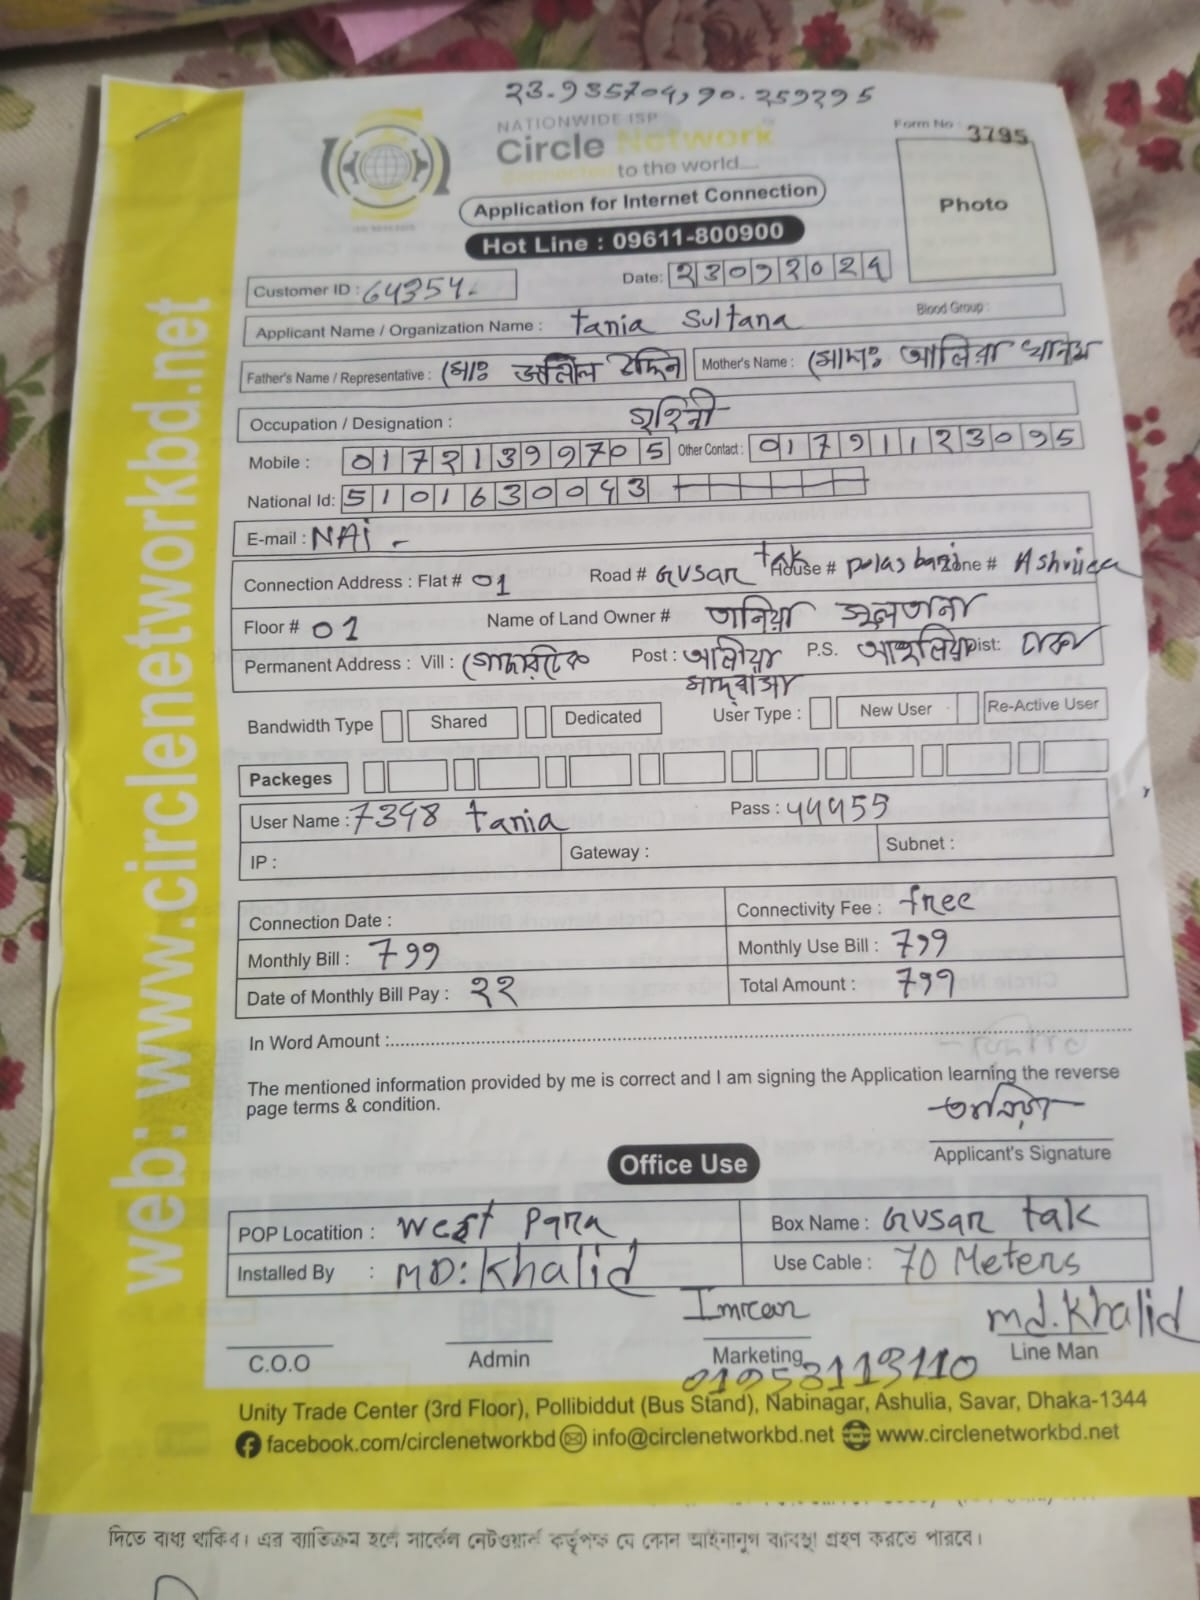 23.935704, 90.259295
NATIONWIDE ISP
Circle Network
Connected to the world....
Form No : 3795
Photo
Application for Internet Connection
Hot Line : 09611-800900
Customer ID : 64354.
Date: 23092024
Applicant Name / Organization Name : Tania Sultana Blood Group :
Father's Name / Representative : মোঃ জলিল উদ্দিন Mother's Name : মোসাঃ আলিয়া খানম
Occupation / Designation : গৃহিনী
Mobile : 01721399705 Other Contact : 01791123095
National Id: 5101630043
E-mail : NAI -
Connection Address : Flat # 01 Road # Gusar tak House # polas bari Zone # Ashuliea
Floor # 01 Name of Land Owner # তানিয়া সুলতানা
Permanent Address : Vill : Post : আলীয়া মাদ্রাসা P.S. আশুলিয়া Dist: ঢাকা
Bandwidth Type Shared Dedicated User Type : New User Re-Active User
Packeges
User Name : 7398 tania Pass : 44455
IP : Gateway : Subnet :
Connection Date : Connectivity Fee : free
Monthly Bill : 799 Monthly Use Bill : 799
Date of Monthly Bill Pay : 22 Total Amount : 799
In Word Amount :
The mentioned information provided by me is correct and I am signing the Application learning the reverse
page terms & condition.
তানিয়া
Applicant's Signature
Office Use
POP Locatition : West Para Box Name : Gusar tak
Installed By : MD: Khalid Use Cable : 70 Meters
Imran md. Khalid
C.O.O Admin Marketing Line Man
01953113110
Unity Trade Center (3rd Floor), Pollibiddut (Bus Stand), Nabinagar, Ashulia, Savar, Dhaka-1344
facebook.com/circlenetworkbd info@circlenetworkbd.net www.circlenetworkbd.net
web: www.circlenetworkbd.net
দিতে বাধ্য থাকিব। এর ব্যতিক্রম হলে সার্কেল নেটওয়ার্ক কর্তৃপক্ষ যে কোন আইনানুগ ব্যবস্থা গ্রহণ করতে পারবে।